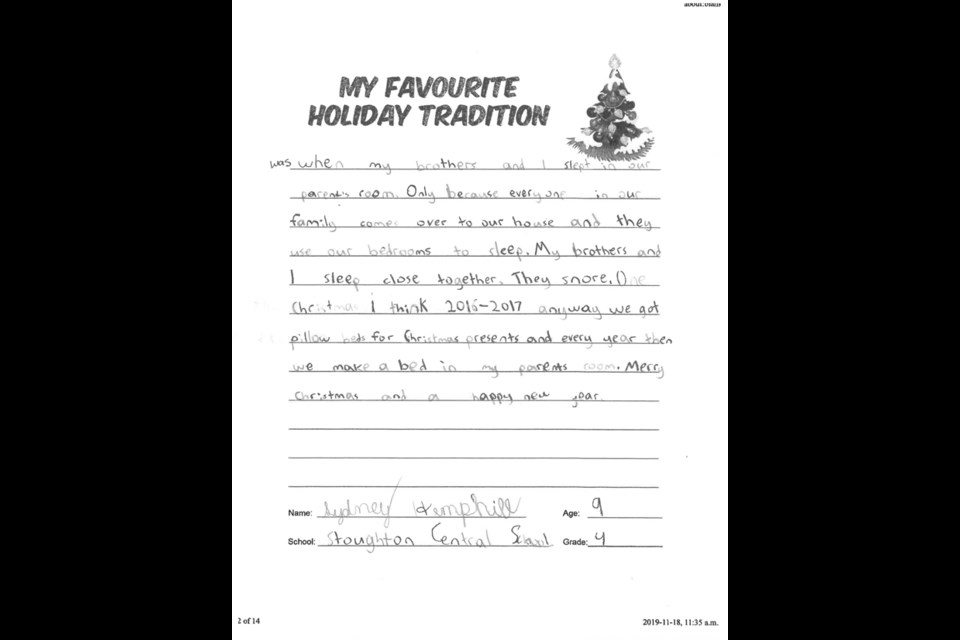 MY FAVOURITE
HOLIDAY TRADITION
was when my brothers and I slept in our
parent's room. Only because everyone in our
family comes over to our house and they
use our bedrooms to sleep. My brothers and
I sleep close together. They snore. One
Christmas I think 2016-2017 anyway we got
pillow beds for Christmas presents and every year then
we make a bed in my parents room. Merry
Christmas and a happy new year.
Name: Sydney Hemphill Age: 9
School: Stoughton Central School Grade: 4
2 of 14 2019-11-18, 11:35 a.m.